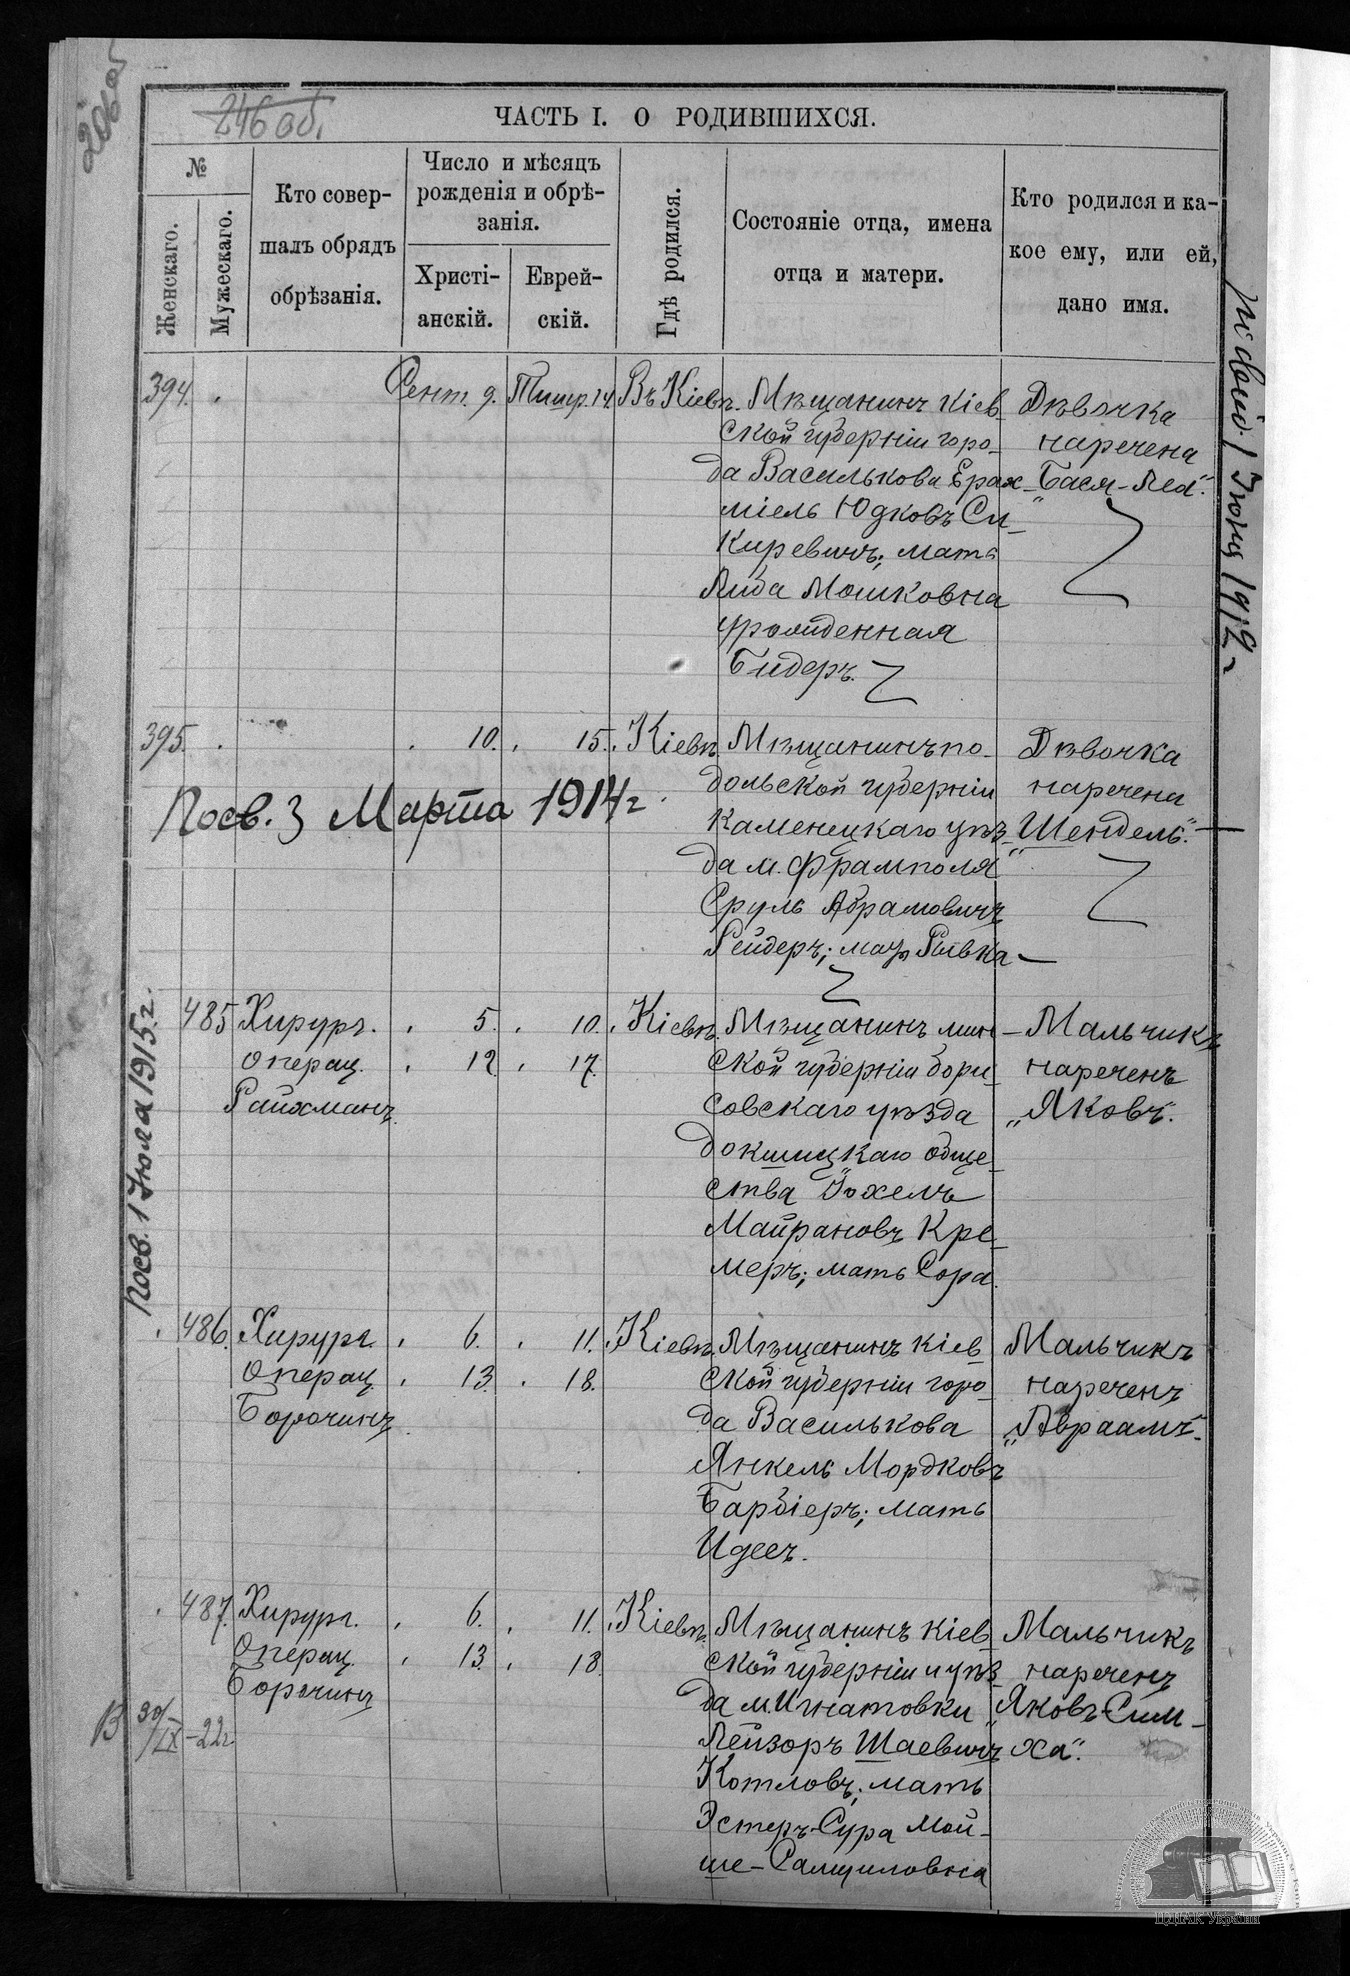 206 об
246 об.
ЧАСТЬ I. О РОДИВШИХСЯ.
№
Женскаго.
Мужескаго.
Кто совер-
шалъ обрядъ
обрѣзанія.
Число и мѣсяцъ
рожденія и обрѣ-
занія.
Христі-
анскій.
Еврей-
скій.
Гдѣ родился.
Состояніе отца, имена
отца и матери.
Кто родился и ка-
кое ему, или ей,
дано имя.
394. Сент. 9. Тишр. 14. Въ Кіевѣ.
Мѣщанинъ Кіев-
ской губерніи горо-
да Василькова Ерах-
міель Юдковъ Си-
киревичъ; мать
Либа Мошковна
урожденная
Бидеръ.
Дѣвочка
наречена
„Бася-Лея“.
Іюня 1912 г
395. 10. 15. Кіевѣ.
Мѣщанинъ по-
дольской губерніи
каменецкаго уѣз-
да м. Фрамполя
Сруль Абрамовичъ
Рейдеръ; мать Ривка
Дѣвочка
наречена
„Шендель“.
Посв. 3 Марта 1914 г.
Посв. 1 Іюля 1915 г.
485 Хирургъ.
операц.
Райхманъ.
5. 10. Кіевѣ.
12. 17.
Мѣщанинъ мин-
ской губерніи бори-
совскаго уѣзда
докшицкаго обще-
ства Іохель
Майрановъ Кре-
меръ; мать Сора.
Мальчикъ
нареченъ
„Яковъ“.
486. Хирург.
Операц.
Борочинъ.
6. 11. Кіевѣ.
13. 18.
Мѣщанинъ кіев-
ской губерніи горо-
да Василькова
Янкель Мордковъ
Барбіеръ; мать
Идесъ.
Мальчикъ
нареченъ
„Авраамъ“.
487. Хирург.
Операц.
Борочинъ
6. 11. Кіевѣ.
13. 18.
Мѣщанинъ кіев-
ской губерніи и уѣз-
да м. Игнатовки
Лейзоръ Шаевичъ
Котловъ; мать
Эстеръ-Сура Мой-
ше-Самуиловна
Мальчикъ
нареченъ
„Яковъ-Сим-
ха“.
В 30/IX - 22 г.
ЦДІАК України